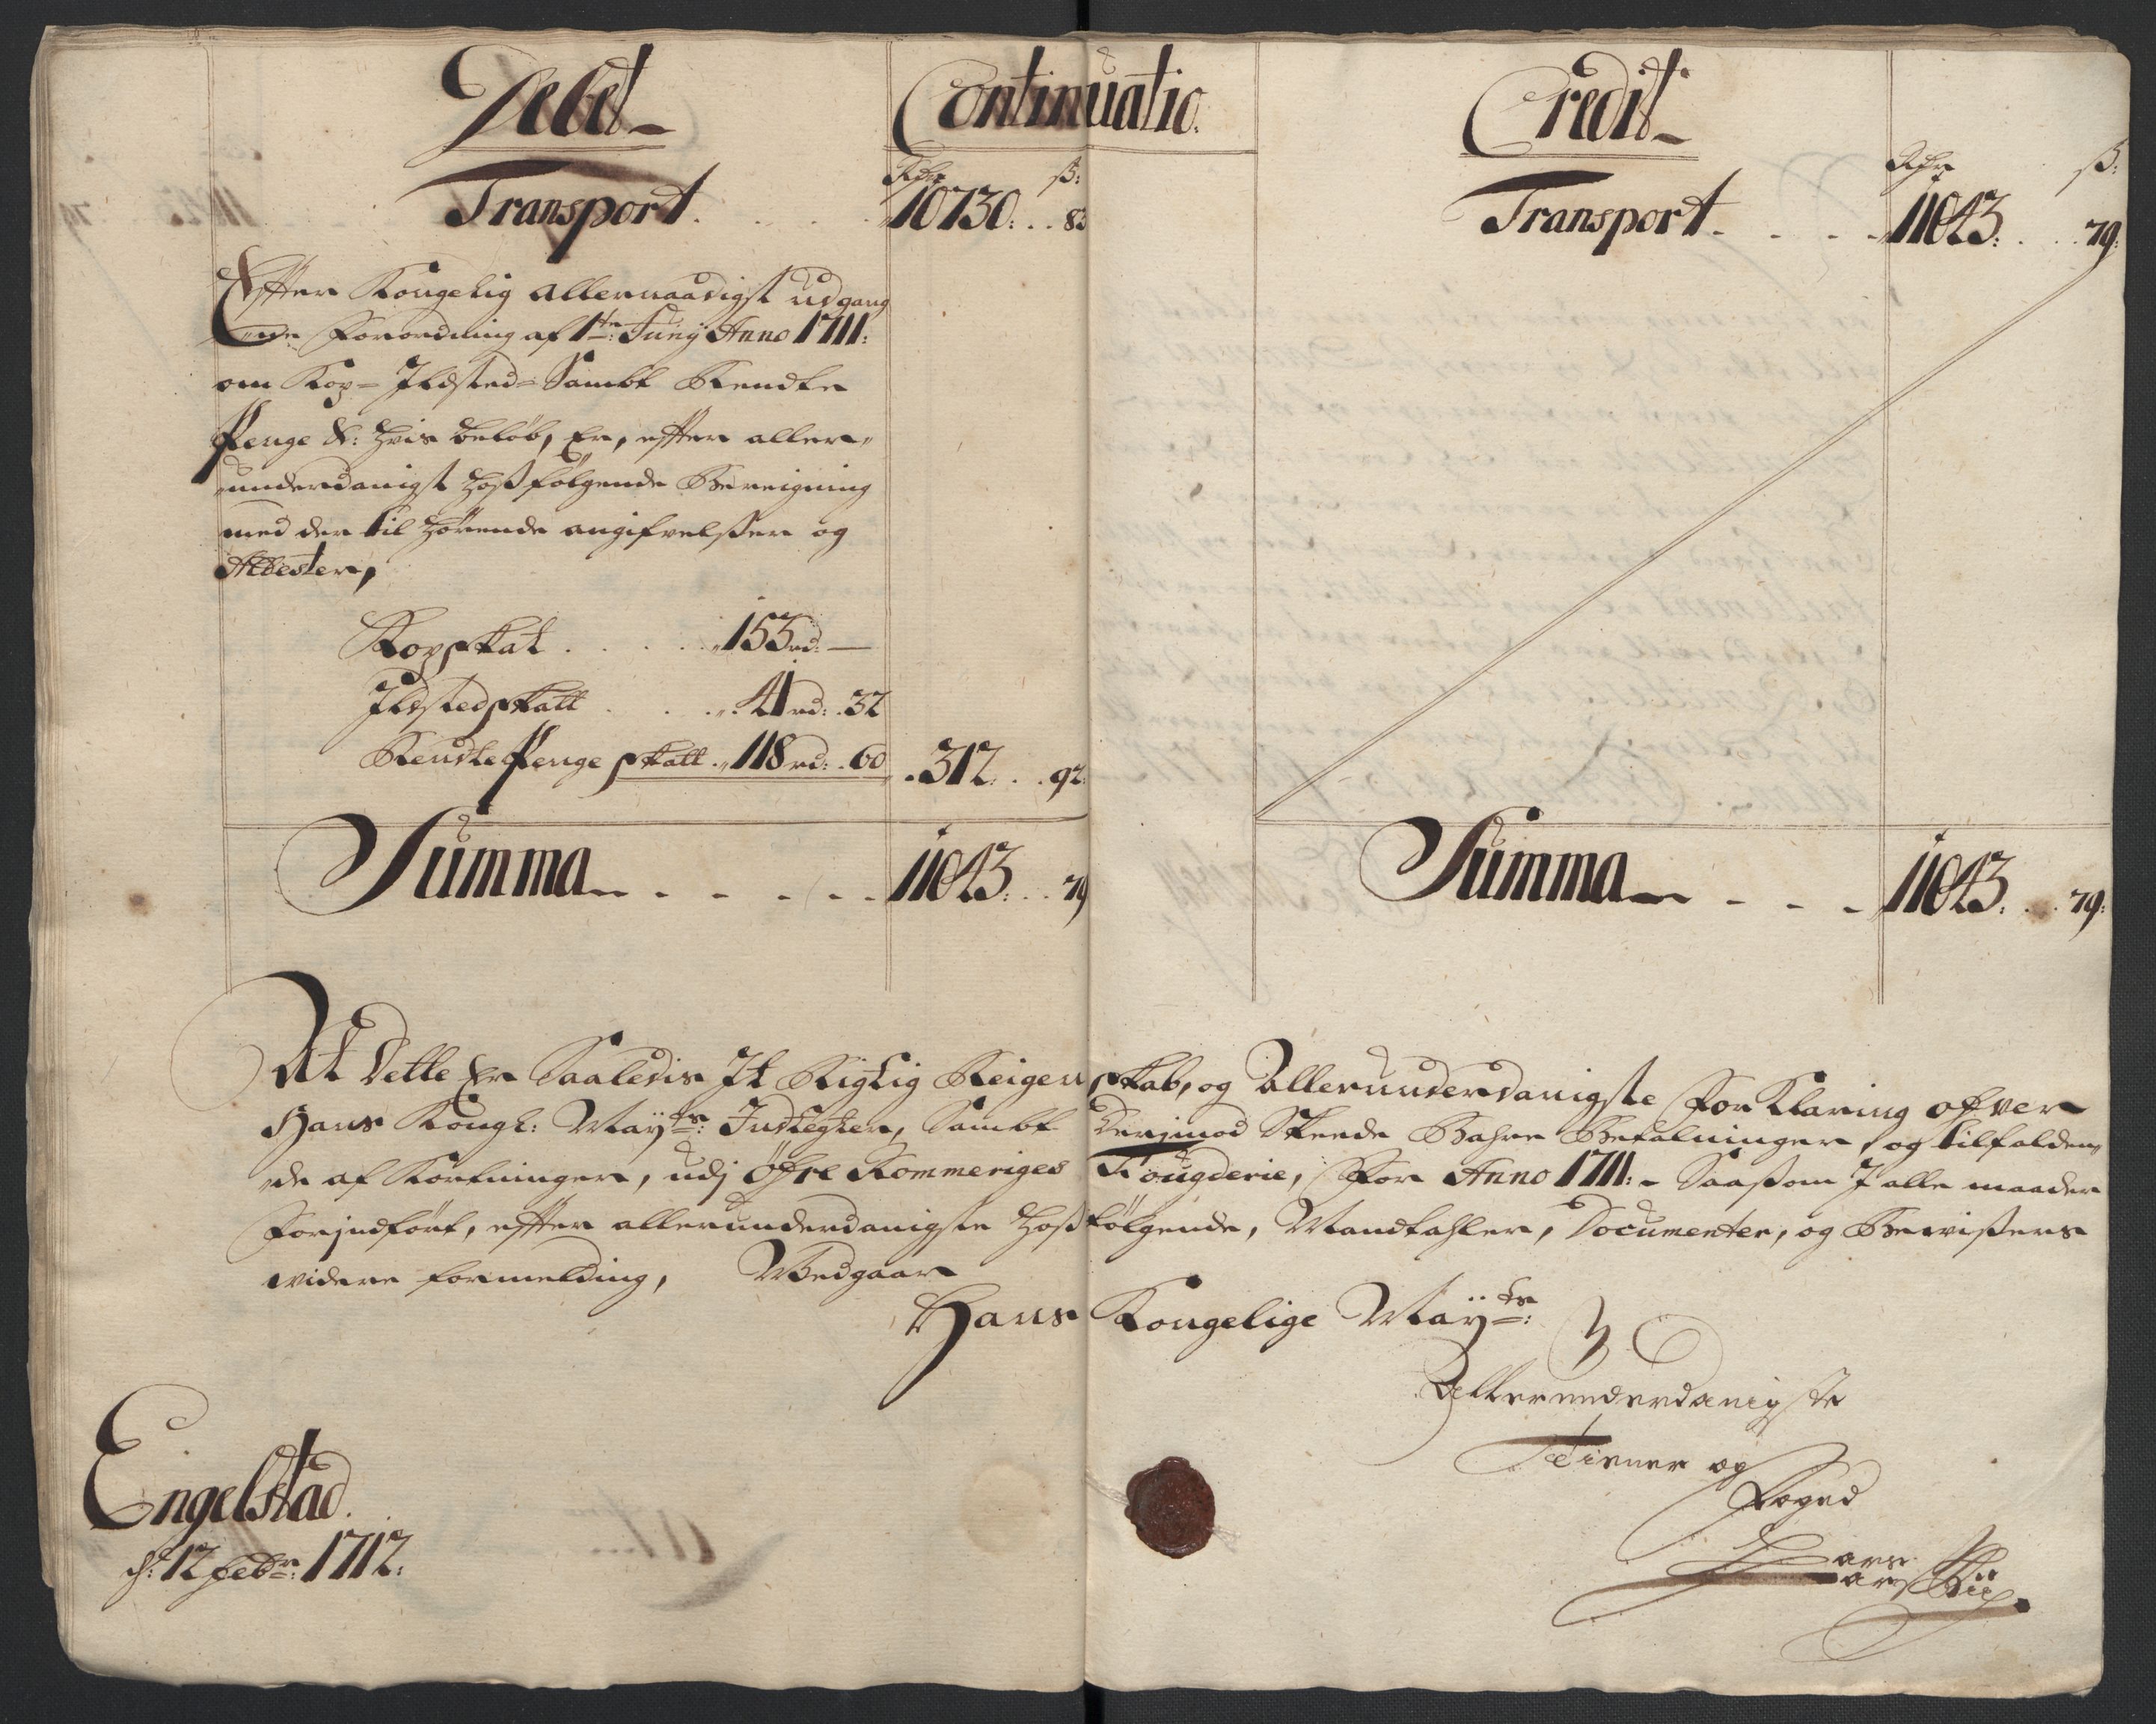 Debet
Continuatio.
Rdr ß:
Transport. 10730: 83
Effter Kongelig allernaadigst udgang
ene Forordning af 1te: Junij Anno 1711:
om Kop- Ildsted- Sambt Rendte
Penge &: hvis beløb, Er, effter aller„
„underdanigst hoßfølgende Bereigning
med der til hørende angifvelßer og
Attester,
Kopskat 155rd: —
Ildstedskatt 41rd: 32
Rendte Penge skatt 118rd: 60 312: 92:
Summa 11043: 79
Credit
Rdr ß:
Transport. 11043: 79:
Summa 11043: 79:
At Dette Er Saaledis It Rigtig Reigenskab, og Allerunderdanigste Forklaring ofver
Hans Kongl: Mayts: Indtegter, Sambt Derjmod Skeede Bahre Betalninger, og tilfalden„
„de af Kortninger, udj Øfre Rommeriges Fougderie, For Anno 1711:- Saaßom J alle maader
Forjndført, effter allerunderdanigste hoßfølgende, Mandtahler, Documenter, og Bewißers
widere formelding, Wedgaar
Hans Kongelige Mayts:
Allerunderdanigste
Tienner og
Foged
Engelstad.
d: 12 Febr: 1712: